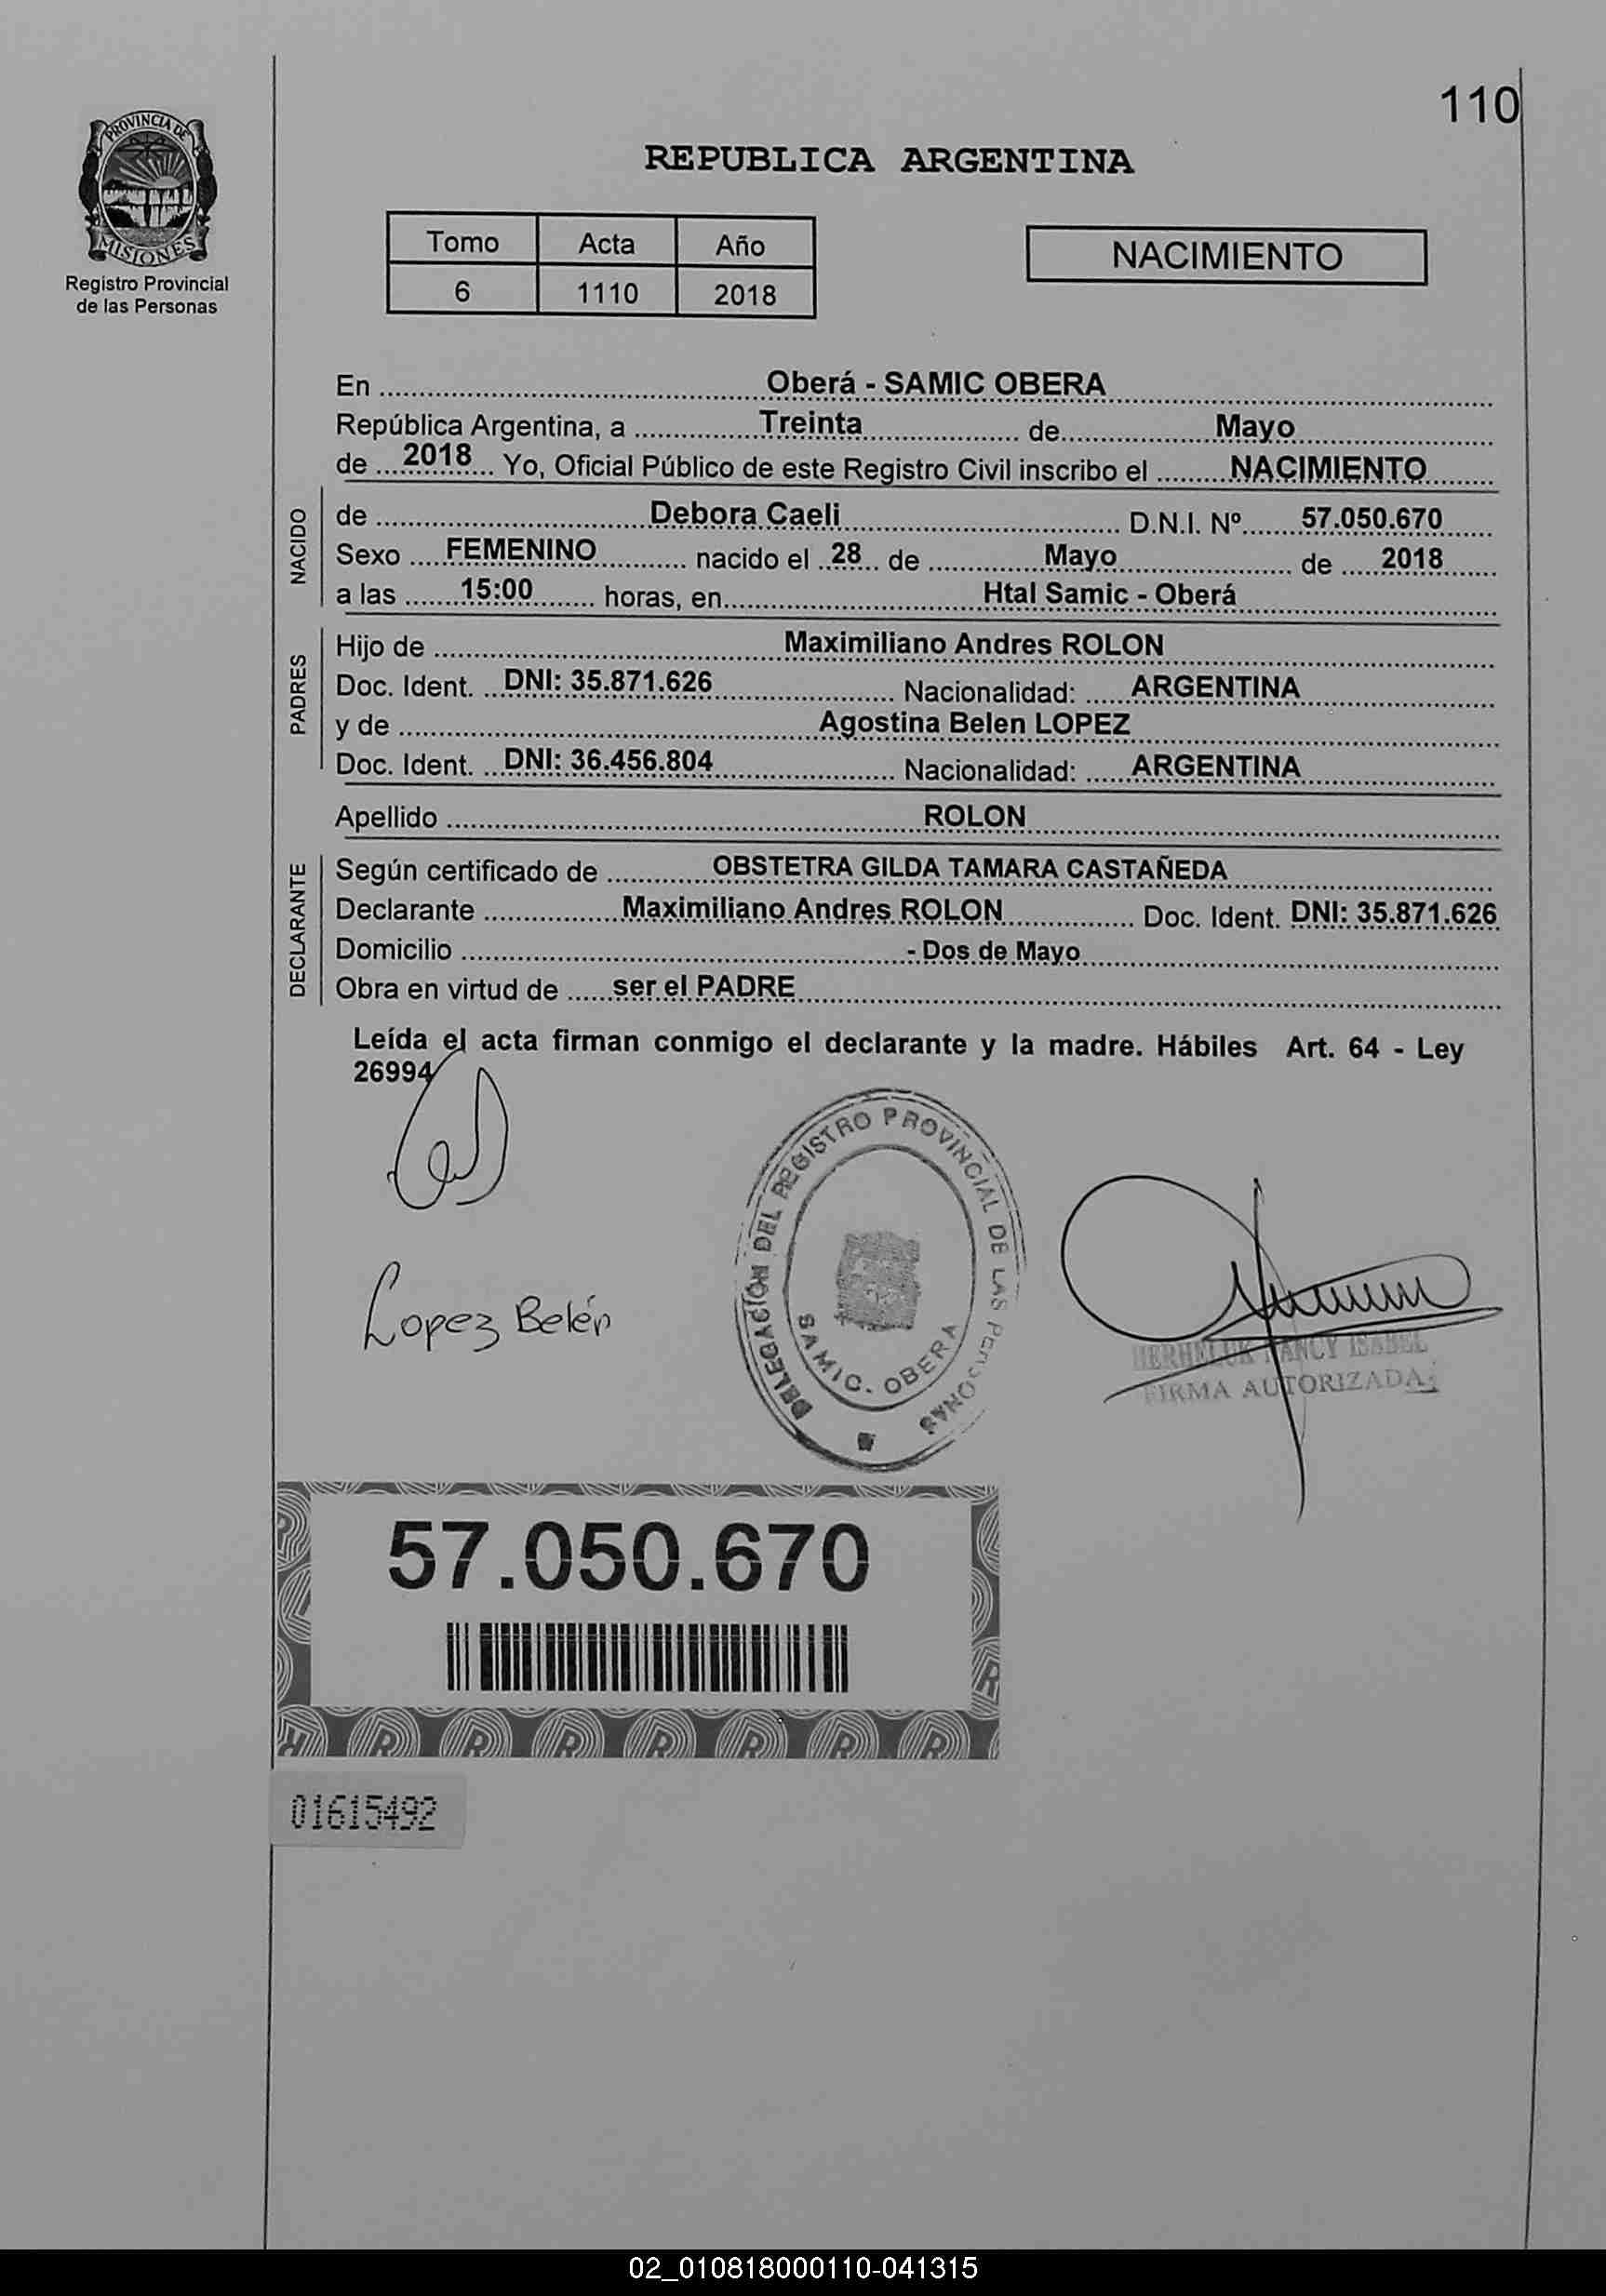 110
PROVINCIA DE
MISIONES
Registro Provincial
de las Personas
REPUBLICA ARGENTINA
Tomo Acta Año
6 1110 2018
NACIMIENTO
En ........ Oberá - SAMIC OBERA ........
República Argentina, a ........ Treinta ........ de ........ Mayo ........
de ........ 2018 ........ Yo, Oficial Público de este Registro Civil inscribo el ........ NACIMIENTO ........
NACIDO
de ........ Debora Caeli ........ D.N.I. Nº ........ 57.050.670 ........
Sexo ........ FEMENINO ........ nacido el ..28.. de ........ Mayo ........ de ........ 2018 ........
a las ........ 15:00 ........ horas, en ........ Htal Samic - Oberá ........
PADRES
Hijo de ........ Maximiliano Andres ROLON ........
Doc. Ident. ... DNI: 35.871.626 ........ Nacionalidad: ........ ARGENTINA ........
y de ........ Agostina Belen LOPEZ ........
Doc. Ident. ... DNI: 36.456.804 ........ Nacionalidad: ........ ARGENTINA ........
Apellido ........ ROLON ........
DECLARANTE
Según certificado de ........ OBSTETRA GILDA TAMARA CASTAÑEDA ........
Declarante ........ Maximiliano Andres ROLON ........ Doc. Ident. DNI: 35.871.626
Domicilio ........ - Dos de Mayo ........
Obra en virtud de ...... ser el PADRE ........
Leída el acta firman conmigo el declarante y la madre. Hábiles Art. 64 - Ley
26994
Lopez Belén
DELEGACION DEL REGISTRO PROVINCIAL DE LAS PERSONAS
SAMIC. OBERA
NANCY ISABEL
FIRMA AUTORIZADA
57.050.670
01615492
02_010818000110-041315